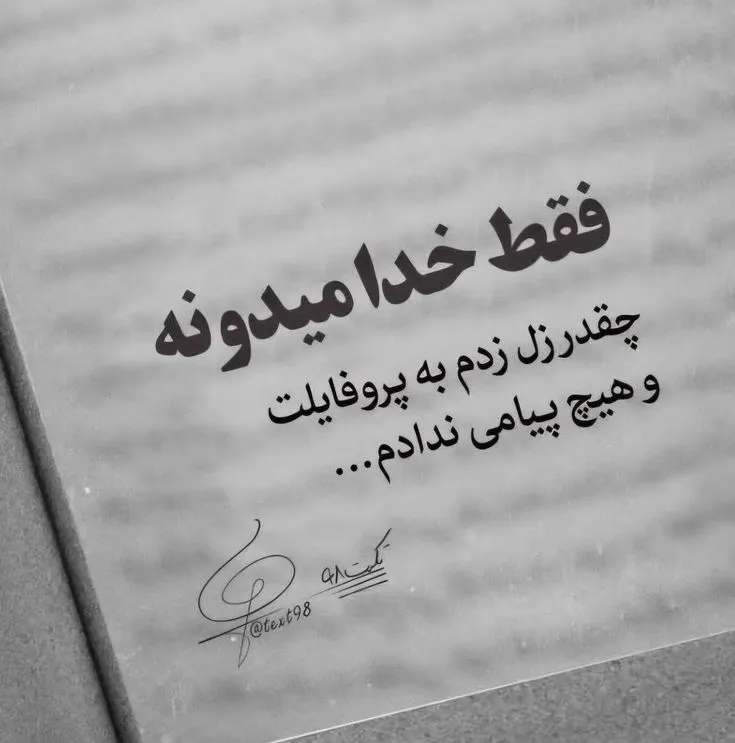 فقط خدا میدونه
چقدر زل زدم به پروفایلت
و هیچ پیامی ندادم...
تکست ۹۸
@text98